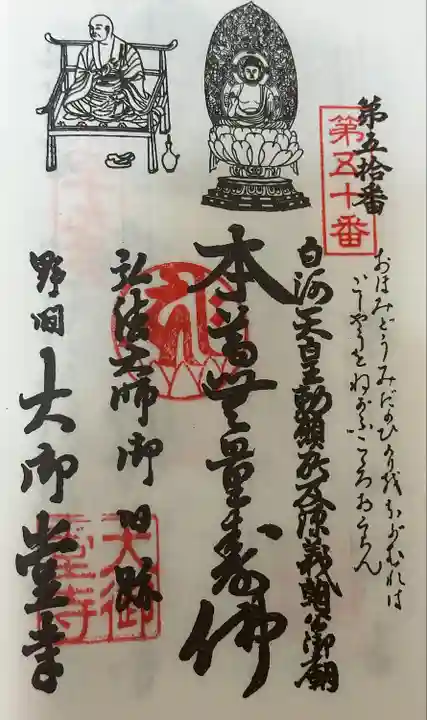 第五拾番
第五十番
おほみどうみだのひかりをあおがむれは
ごしやうをねがふこころおこらん
白河天皇勅願所及源義朝公御廟
本尊無量寿佛
弘法大師御旧跡
野間大御堂寺
大御
堂寺